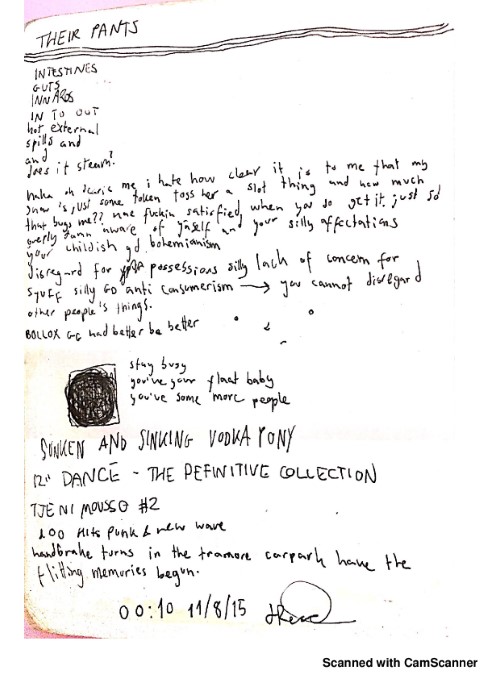 THEIR PANTS
INTESTINES
GUTS
INNARDS
IN TO OUT
hot external
spills and
and
does it steam?
me i hate how clear it is to me that my
some token toss her a slot thing and how much
that bugs me?? fuckin satisfied when you so get it just so
aware of yrself and your silly affectations
your childish bohemianism
disregard for possessions silly lack of concern for
STUFF silly anti consumerism → you cannot disregard
other people's things.
BOLLOX had better be better
stay busy
you've your float baby
you've some more people
SUNKEN AND SINKING VODKA PONY
12" DANCE - THE DEFINITIVE COLLECTION
TJENI MOUSSO #2
100 Hits Punk & new wave
handbrake turns in the tramore carpark have the
flitting memories begun.
00:10 11/8/15
Scanned with CamScanner